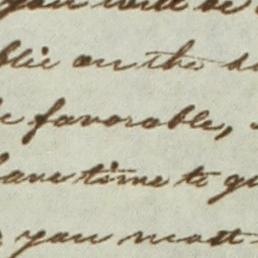 you will be
on the
favorable,
have time to
you most